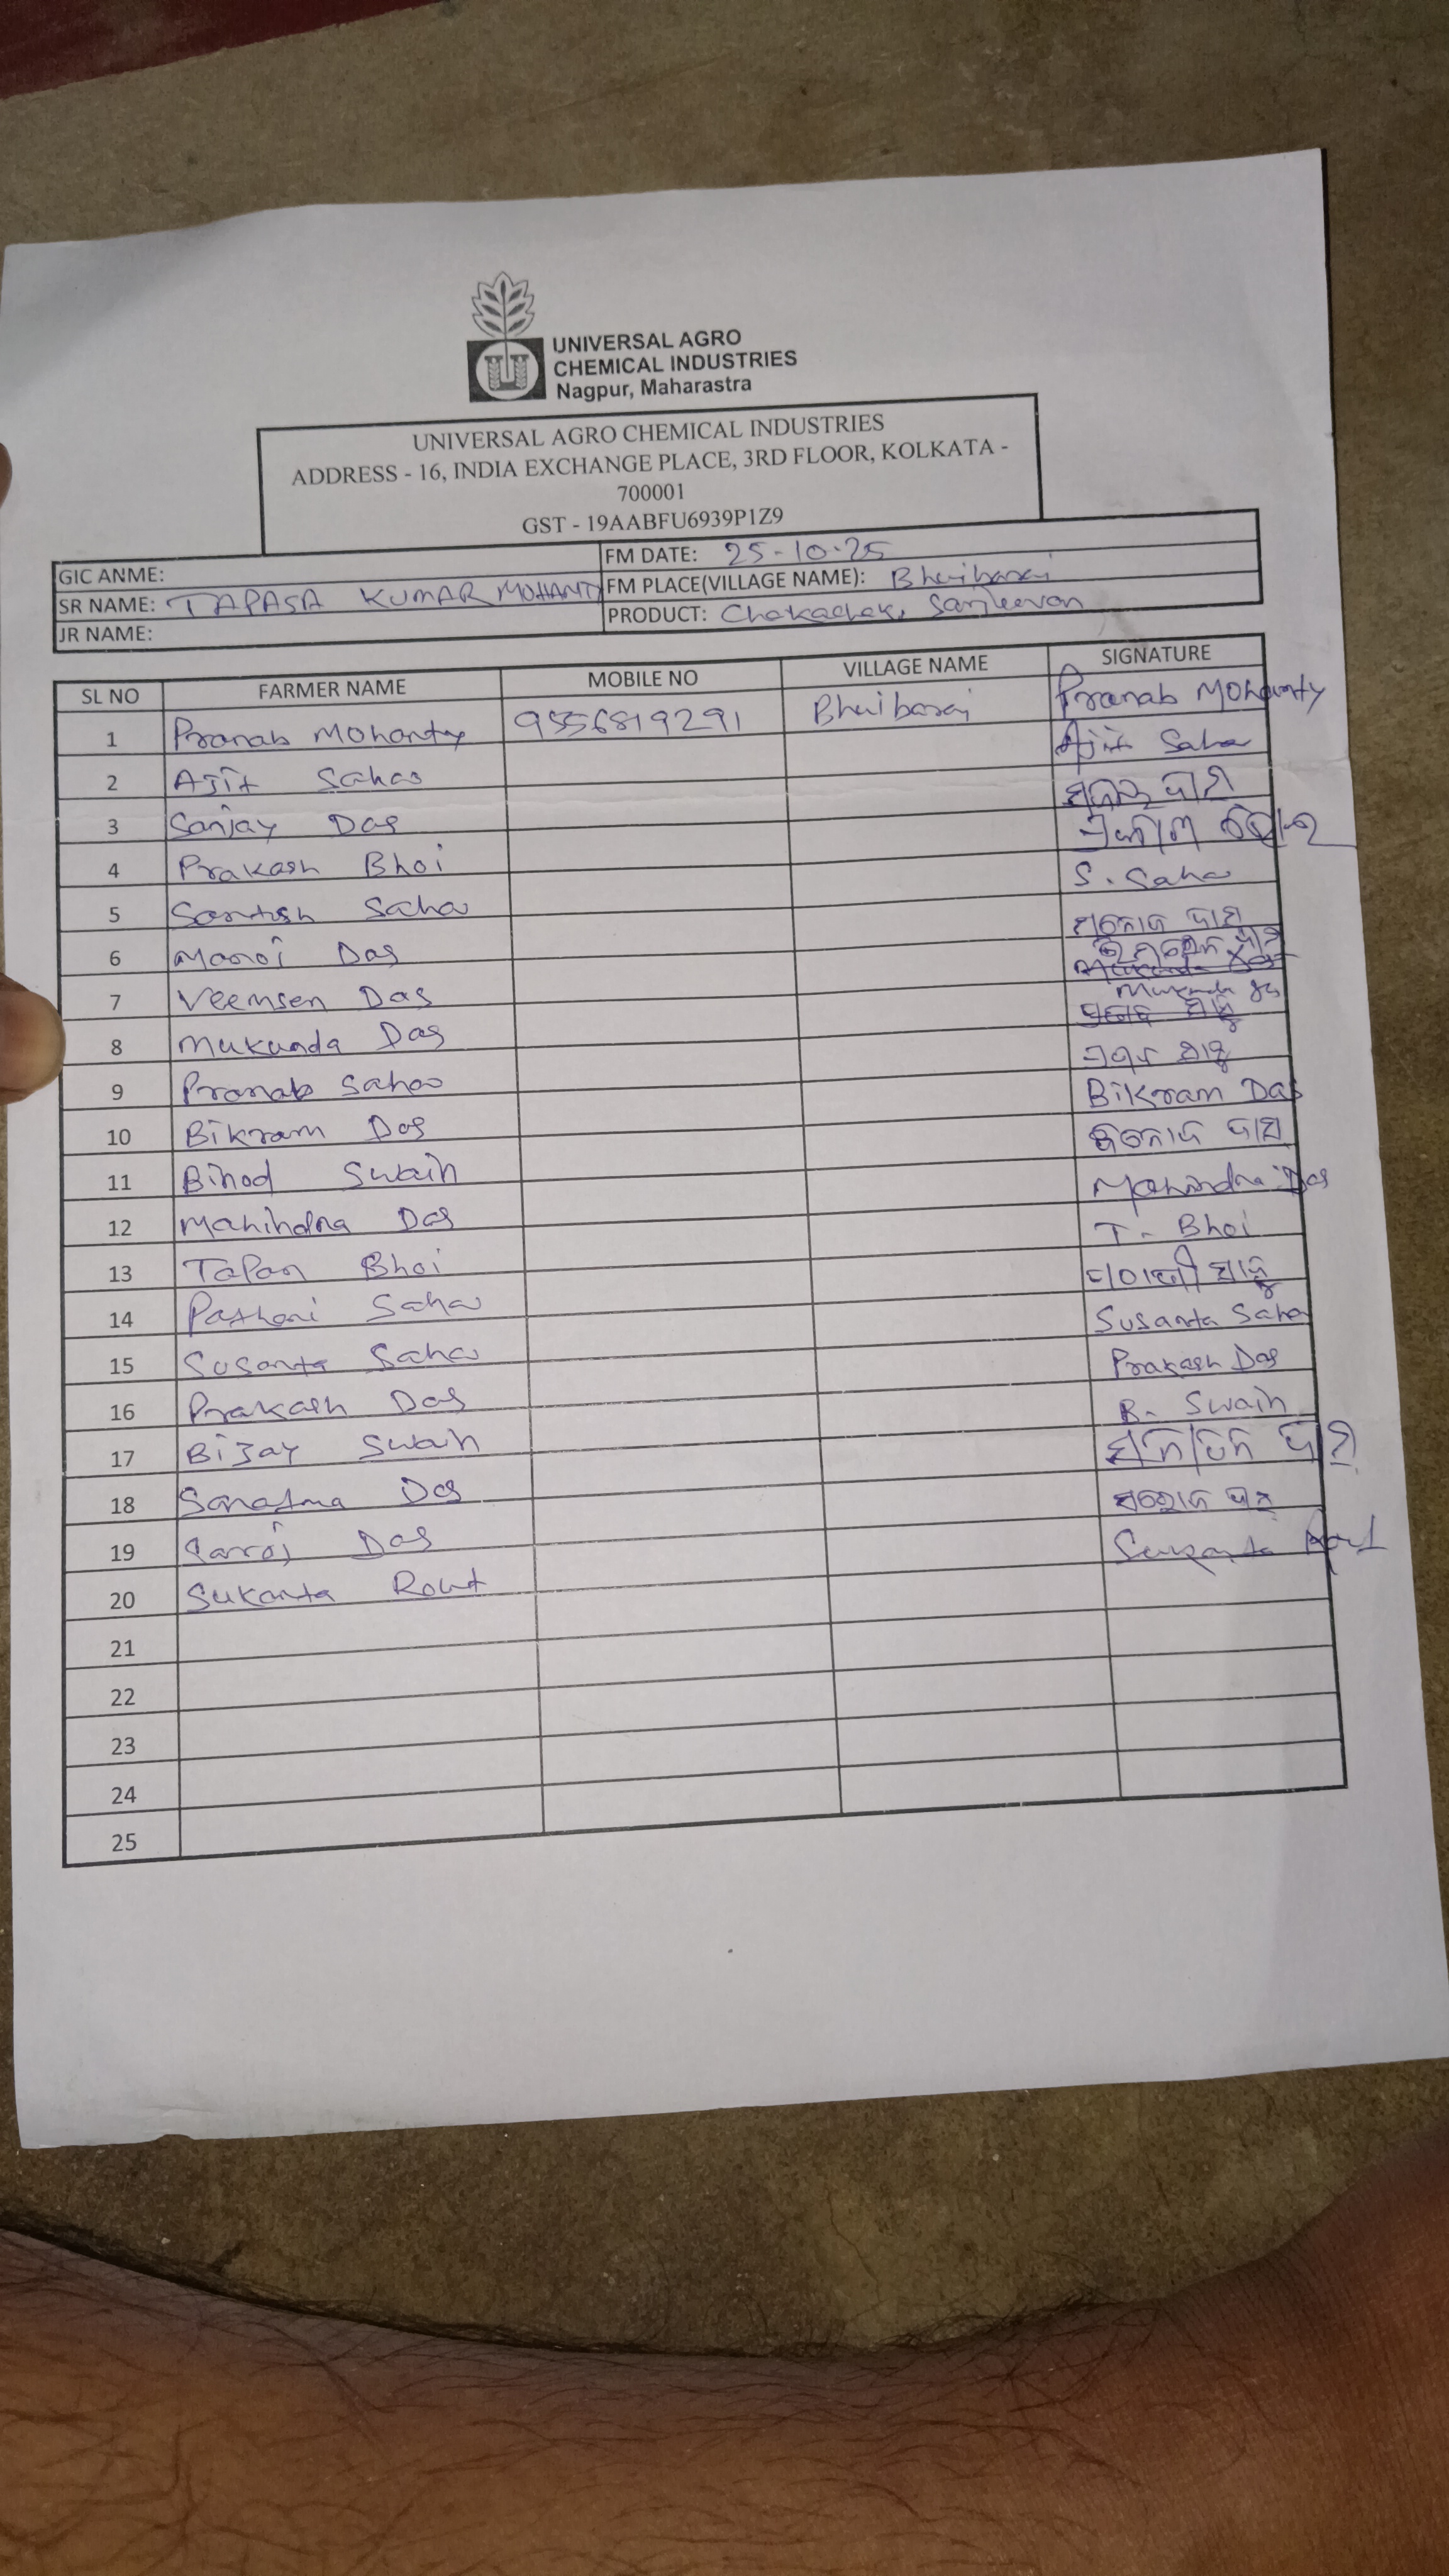 UNIVERSAL AGRO
CHEMICAL INDUSTRIES
Nagpur, Maharastra
UNIVERSAL AGRO CHEMICAL INDUSTRIES
ADDRESS - 16, INDIA EXCHANGE PLACE, 3RD FLOOR, KOLKATA -
700001
GST - 19AABFU6939P1Z9
GIC ANME: FM DATE: 25-10-25
SR NAME: TAPASA KUMAR MOHANTY FM PLACE(VILLAGE NAME): Bhuibarai
JR NAME: PRODUCT: Chakachak, Sanjeevan
SL NO FARMER NAME MOBILE NO VILLAGE NAME SIGNATURE
1 Pranab Mohanty 9556819291 Bhuibarai Pranab Mohanty
2 Ajit Sahoo Ajit Sahoo
3 Sanjay Das
4 Prakash Bhoi
5 Santosh Sahoo S. Sahoo
6 Manoj Das ମନୋଜ ଦାସ
7 Veemsen Das
8 Mukunda Das Mukunda Das
9 Pranab Sahoo
10 Bikram Das Bikram Das
11 Binod Swain ବିନୋଦ ଦାସ
12 Mahindra Das Mahindra Das
13 Tapan Bhoi T. Bhoi
14 Pathani Sahoo ପଠାଣୀ ସାହୁ
15 Susanta Sahoo Susanta Sahoo
16 Prakash Das Prakash Das
17 Bijay Swain B. Swain
18 Sanatna Das ସନାତନ ଦାସ
19 Saroj Das ସରୋଜ ଦାସ
20 Sukanta Rout Sukanta Rout
21
22
23
24
25